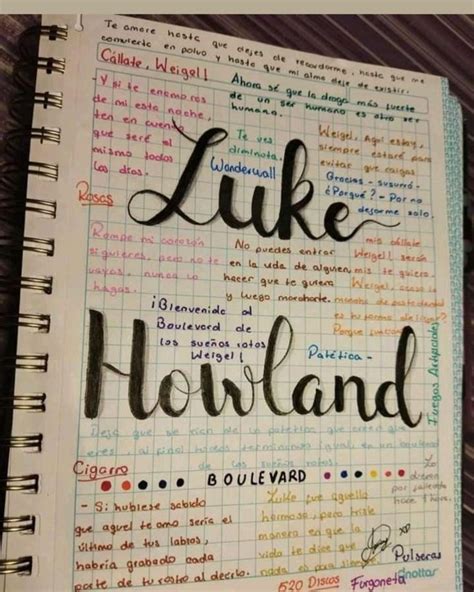 Te amare hasta que dejes de recordarme, hasta que me
convierta en polvo y hasta que mi alma deje de existir.
Cállate, Weigel!
Ahora sé que la droga más fuerte
de un ser humano es otro ser
humano.
- Y si te enamoras
de mi esta noche,
ten en cuenta
que seré el
mismo todos
los días.
Te ves
diminuta.
Wonderwall
Weigel, Aquí estoy,
siempre estaré para
evitar que caigas
Gracias - susurró -
¿Porqué? - Por no
dejarme solo.
Luke
Rosas
Rompe mi corazón
si quieres, pero no te
vayas, nunca lo
hagas.
No puedes entrar
en la vida de alguien,
hacer que te quiera
y luego marcharte.
mis cállate
Weigel! serán
mis te quiero.
Weigel,
¡Bienvenida al
Boulevard de
los sueños rotos
Weigel!
Patética -
Howland
Fuegos Artificiales
Cigarro
BOULEVARD
- Si hubiese sabido
que aquel te amo sería el
último de tus labios,
habría grabado cada
parte de tu rostro al decirlo.
Luke fue aquello
hermoso, pero triste
manera en que la
vida te dice que
nada es para siempre
Pulseras
520 Discos
Furgoneta